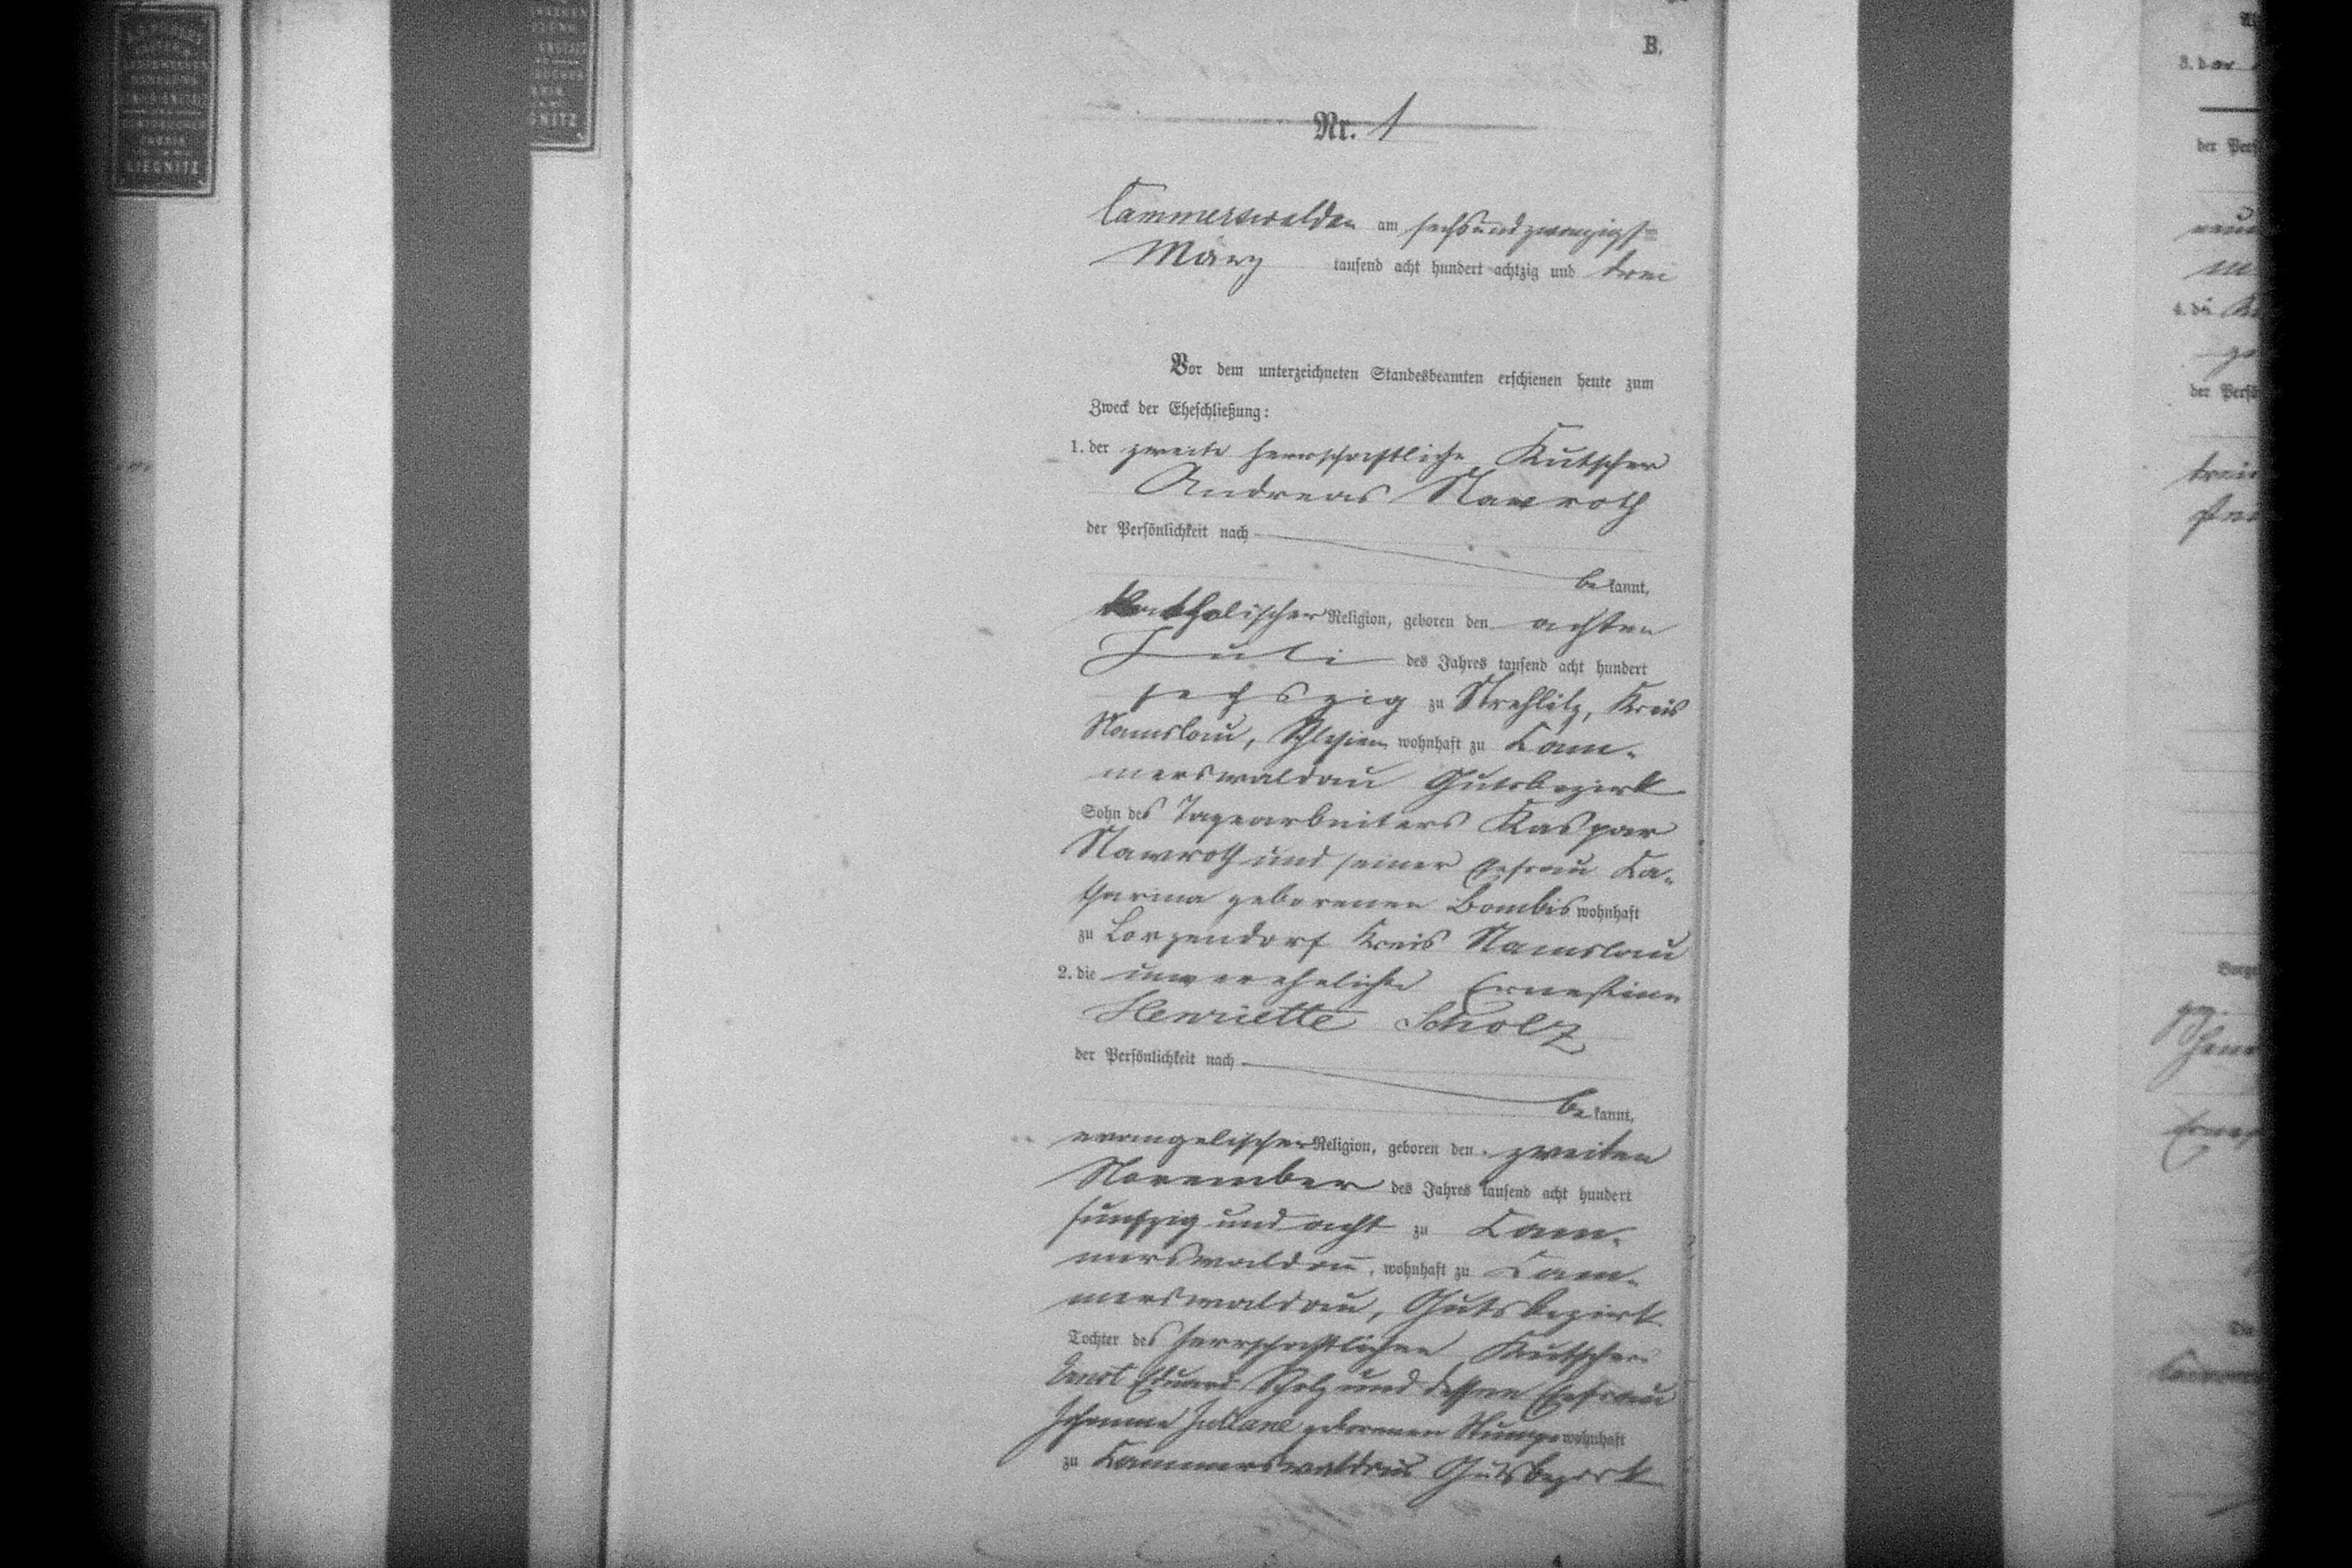 LIEGNITZ
GNITZ
B.
Nr. 1
Cammerswaldau am sechsundzwanzigsten
März tausend acht hundert achtzig und drei
Vor dem unterzeichneten Standesbeamten erschienen heute zum
Zweck der Eheschließung:
1. der zweite herrschaftliche Kutscher
Andreas Nawroth
der Persönlichkeit nach
be kannt,
katholischer Religion, geboren den achten
Juli des Jahres tausend acht hundert
sechszig zu Strehlitz, Kreis
Namslau, Schlesien wohnhaft zu Cam-
merswaldau Gutsbezirk
Sohn des Tagearbeiters Kaspar
Nawroth und seiner Ehefrau Ka-
tharina geborenen Bombis wohnhaft
zu Lorzendorf Kreis Namslau
2. die unverehelichte Ernestine
Henriette Scholz
der Persönlichkeit nach
be kannt,
evangelischer Religion, geboren den zweiten
November des Jahres tausend acht hundert
funfzig und acht zu Cam-
merswaldau, wohnhaft zu Cam-
merswaldau, Gutsbezirk
Tochter des herrschaftlichen Kutschers
Ernst Eduard Scholz und dessen Ehefrau
Johanne Juliane geborenen Stumpe wohnhaft
zu Kammerswaldau Gutsbezirk
3. der
der Pers
4. die
der Persö